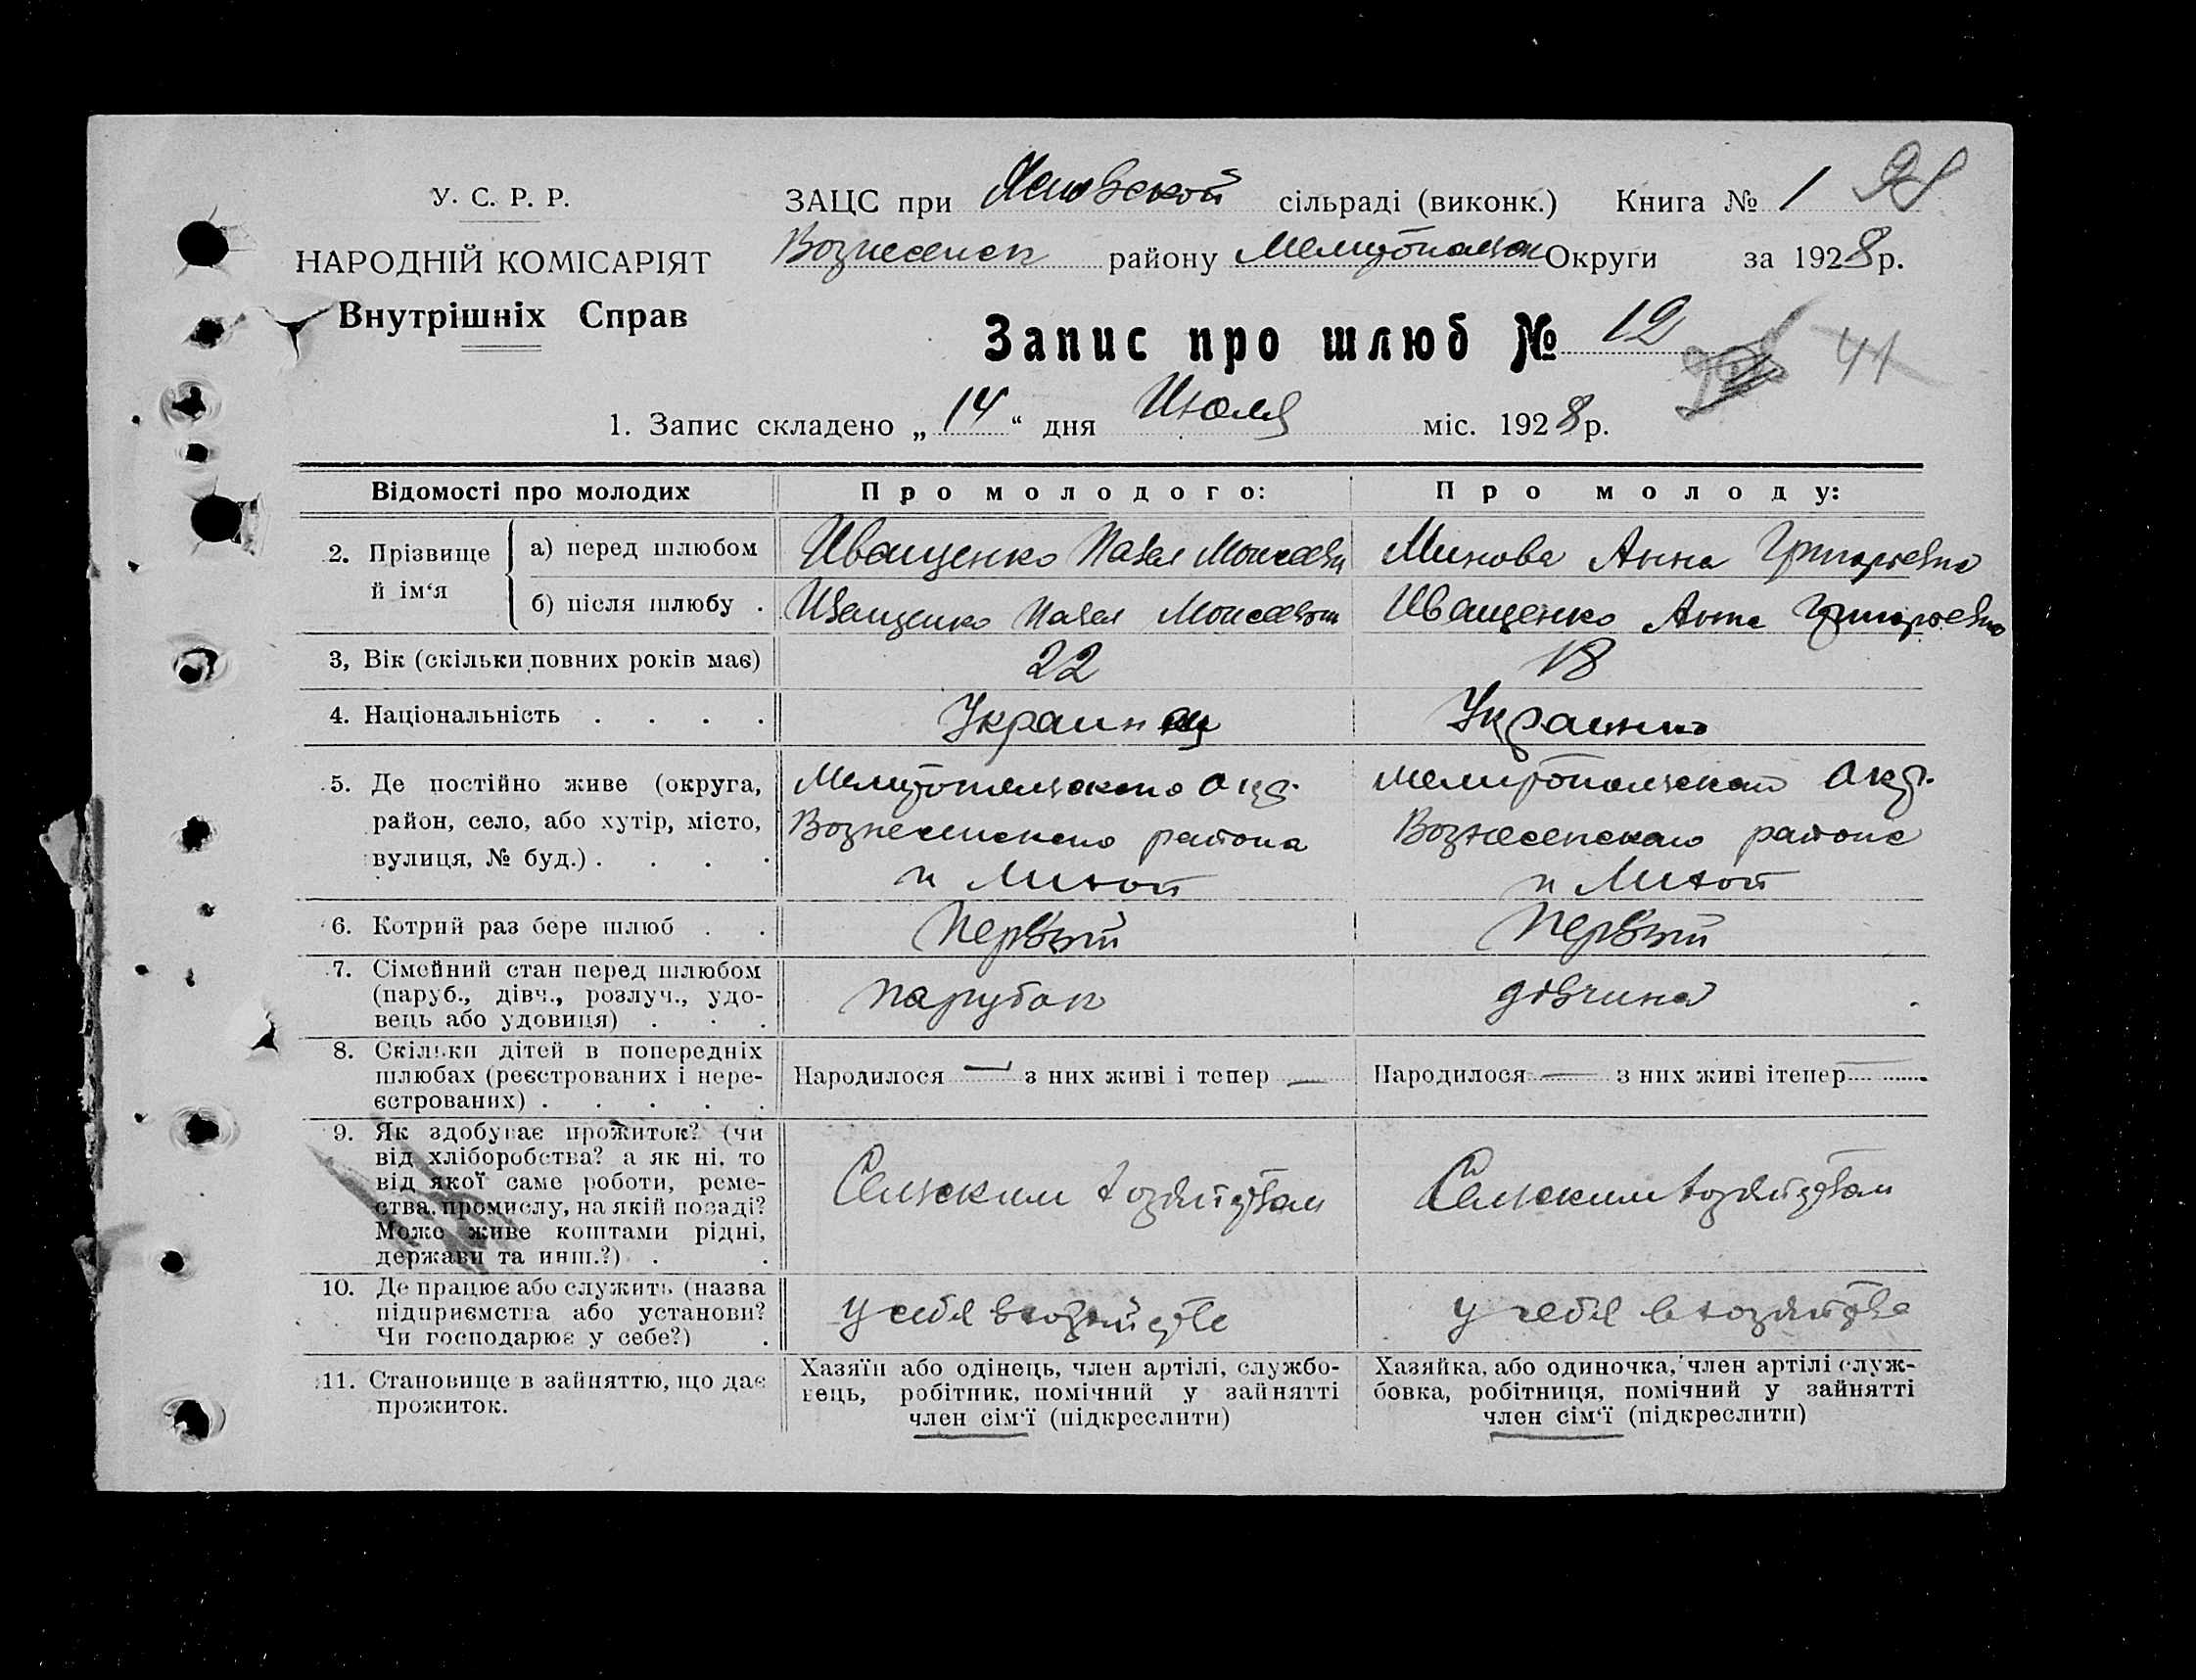 У. С. Р. Р.
НАРОДНІЙ КОМІСАРІЯТ
Внутрішніх Справ
ЗАЦС при сільраді (виконк.) Книга № 1
Вознесенск району Мелитопольск Округи за 1928 р.
Запис про шлюб № 12
41
1. Запис складено „14“ дня Июля міс. 1928 р.
Відомості про молодих Про молодого: Про молоду:
2. Прізвище й ім‘я
а) перед шлюбом Иващенко Павел Моисееви Минова Анна Григорьевна
б) після шлюбу . Иващенко Павел Моисеевич Иващенко Анна Григорьевна
3, Вік (скільки повних років має) 22 18
4. Національність . . . . Украинец Украинка
5. Де постійно живе (округа, район, село, або хутір, місто, вулиця, № буд.) . . . .
Мелитопольского Окр.
Вознесенского района
Мелитопольского Окр.
Вознесенского района
6. Котрий раз бере шлюб . . Первый Первый
7. Сімейний стан перед шлюбом (паруб., дівч., розлуч., удовець або удовиця) . . . парубок дівчина
8. Скільки дітей в попередніх шлюбах (реєстрованих і нереєстрованих) . . . . .
Народилося — з них живі і тепер — Народилося — з них живі ітепер —
9. Як здобуває прожиток? (чи від хліборобства? а як ні, то від якої саме роботи, ремества, промислу, на якій посаді? Може живе коштами рідні, держави та инш.?) . .
Сельским хозяйством Сельским хозяйством
10. Де працює або служить (назва підприємства або установи? Чи господарює у себе?) .
у себя в хозяйстве у себя в хозяйстве
11. Становище в зайняттю, що дає прожиток.
Хазяїн або одінець, член артілі, службовець, робітник, помічний у зайнятті член сім‘ї (підкреслити)
Хазяйка, або одиночка, член артілі службовка, робітниця, помічний у зайнятті член сім‘ї (підкреслити)